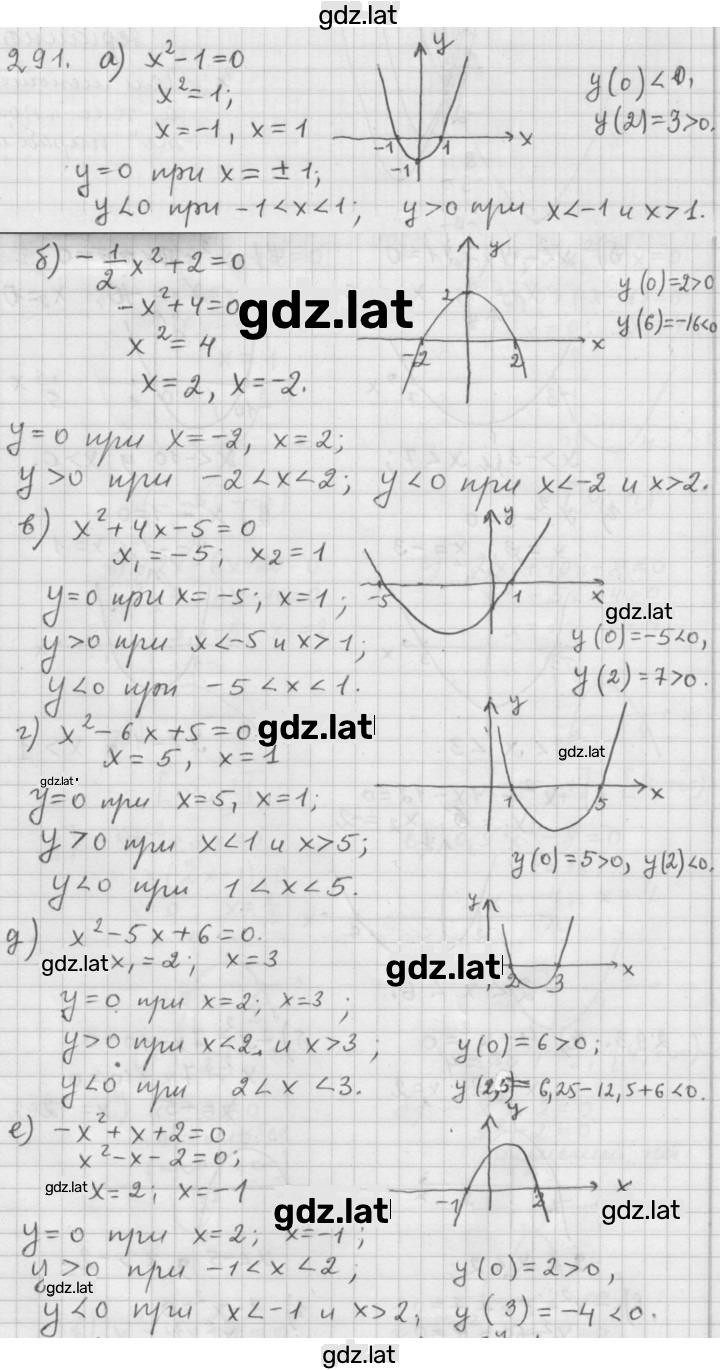 gdz.lat
291. а) x² - 1 = 0
x² = 1;
x = -1, x = 1
y
x
-1
1
-1
y(0) < 0,
y(2) = 3 > 0.
y = 0 при x = ± 1;
y < 0 при -1 < x < 1; y > 0 при x < -1 и x > 1.
б) -1/2 x² + 2 = 0
-x² + 4 = 0
gdz.lat
x² = 4
x = 2, x = -2.
y
2
-2
2
x
y(0) = 2 > 0
y(6) = -16 < 0
y = 0 при x = -2, x = 2;
y > 0 при -2 < x < 2; y < 0 при x < -2 и x > 2.
в) x² + 4x - 5 = 0
x₁ = -5; x₂ = 1
y
-5
1
x
y = 0 при x = -5; x = 1;
gdz.lat
y > 0 при x < -5 и x > 1;
y(0) = -5 < 0,
y < 0 при -5 < x < 1.
y(2) = 7 > 0.
г) x² - 6x + 5 = 0
gdz.lat
x = 5, x = 1
y
gdz.lat
1
5
x
gdz.lat
y = 0 при x = 5, x = 1;
y > 0 при x < 1 и x > 5;
y(0) = 5 > 0, y(2) < 0.
y < 0 при 1 < x < 5.
д) x² - 5x + 6 = 0.
gdz.lat x₁ = 2; x = 3
gdz.lat
y
2
3
x
y = 0 при x = 2; x = 3;
y > 0 при x < 2, и x > 3;
y(0) = 6 > 0;
y < 0 при 2 < x < 3.
y(2,5) = 6,25 - 12,5 + 6 < 0.
е) -x² + x + 2 = 0
x² - x - 2 = 0;
gdz.lat x = 2; x = -1
y
-1
2
x
gdz.lat
gdz.lat
y = 0 при x = 2; x = -1;
y > 0 при -1 < x < 2;
y(0) = 2 > 0,
gdz.lat
y < 0 при x < -1 и x > 2,
y(3) = -4 < 0.
gdz.lat